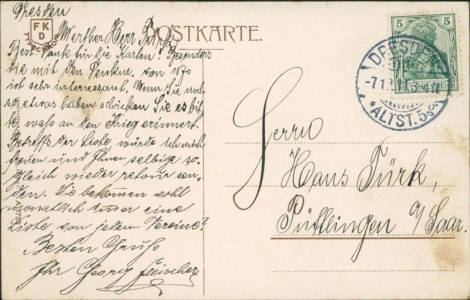 Dresden
POSTKARTE.
FK
D
Werther Herr Türk,
Besten Dank für die Karten! Besonders
die mit den Denkm. von 1870
ist sehr interessant. Wenn Sie noch
so etwas haben schicken Sie es bitte,
was an den Krieg erinnert.
Betreffs der Liste würde ich mich
freuen und Ihnen selbige so-
gleich wieder retour sen-
den. Sie bekommen wohl
monatlich immer eine
Liste von jedem Vereine?
Besten Gruß
Ihr Georg Fleischer
5 5
DRESDEN
ALTST. 5
Herrn
Hans Türk,
Püttlingen a/Saar.